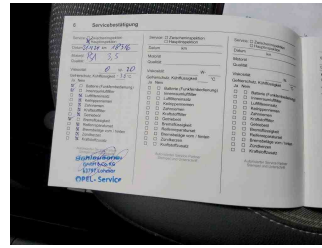 8. Servicebestätigung
Service: Zwischeninspektion
Hauptinspektion
Datum km
Motoröl
Qualität
Viskosität 0 W- 20
Gefrierschutz, Kühlflüssigkeit
Ja Nein
Batterie (Funkfernbedienung)
Innenraumluftfilter
Luftfiltereinsatz
Keilrippenriemen
Zahnriemen
Kraftstofffilter
Getriebeöl
Bremsflüssigkeit
Reifenreparaturset
Bremsbeläge vorn / hinten
Zündkerzen
Kraftstoffzusatz
GmbH & Co. KG
OPEL-Service
Service: Zwischeninspektion
Hauptinspektion
Datum km
Motoröl
Qualität
Viskosität W-
Gefrierschutz, Kühlflüssigkeit °C
Ja Nein
Batterie (Funkfernbedienung)
Innenraumluftfilter
Luftfiltereinsatz
Keilrippenriemen
Zahnriemen
Kraftstofffilter
Getriebeöl
Bremsflüssigkeit
Reifenreparaturset
Bremsbeläge vorn / hinten
Zündkerzen
Kraftstoffzusatz
Service: Zwischeninspektion
Hauptinspektion
Datum
Motoröl
Qualität
Viskosität
Gefrierschutz, Kühlflüssigkeit
Ja Nein
Batterie (Funkfernbedienung)
Innenraumluftfilter
Luftfiltereinsatz
Keilrippenriemen
Zahnriemen
Kraftstofffilter
Getriebeöl
Bremsflüssigkeit
Reifenreparaturset
Bremsbeläge vorn / hinten
Zündkerzen
Kraftstoffzusatz